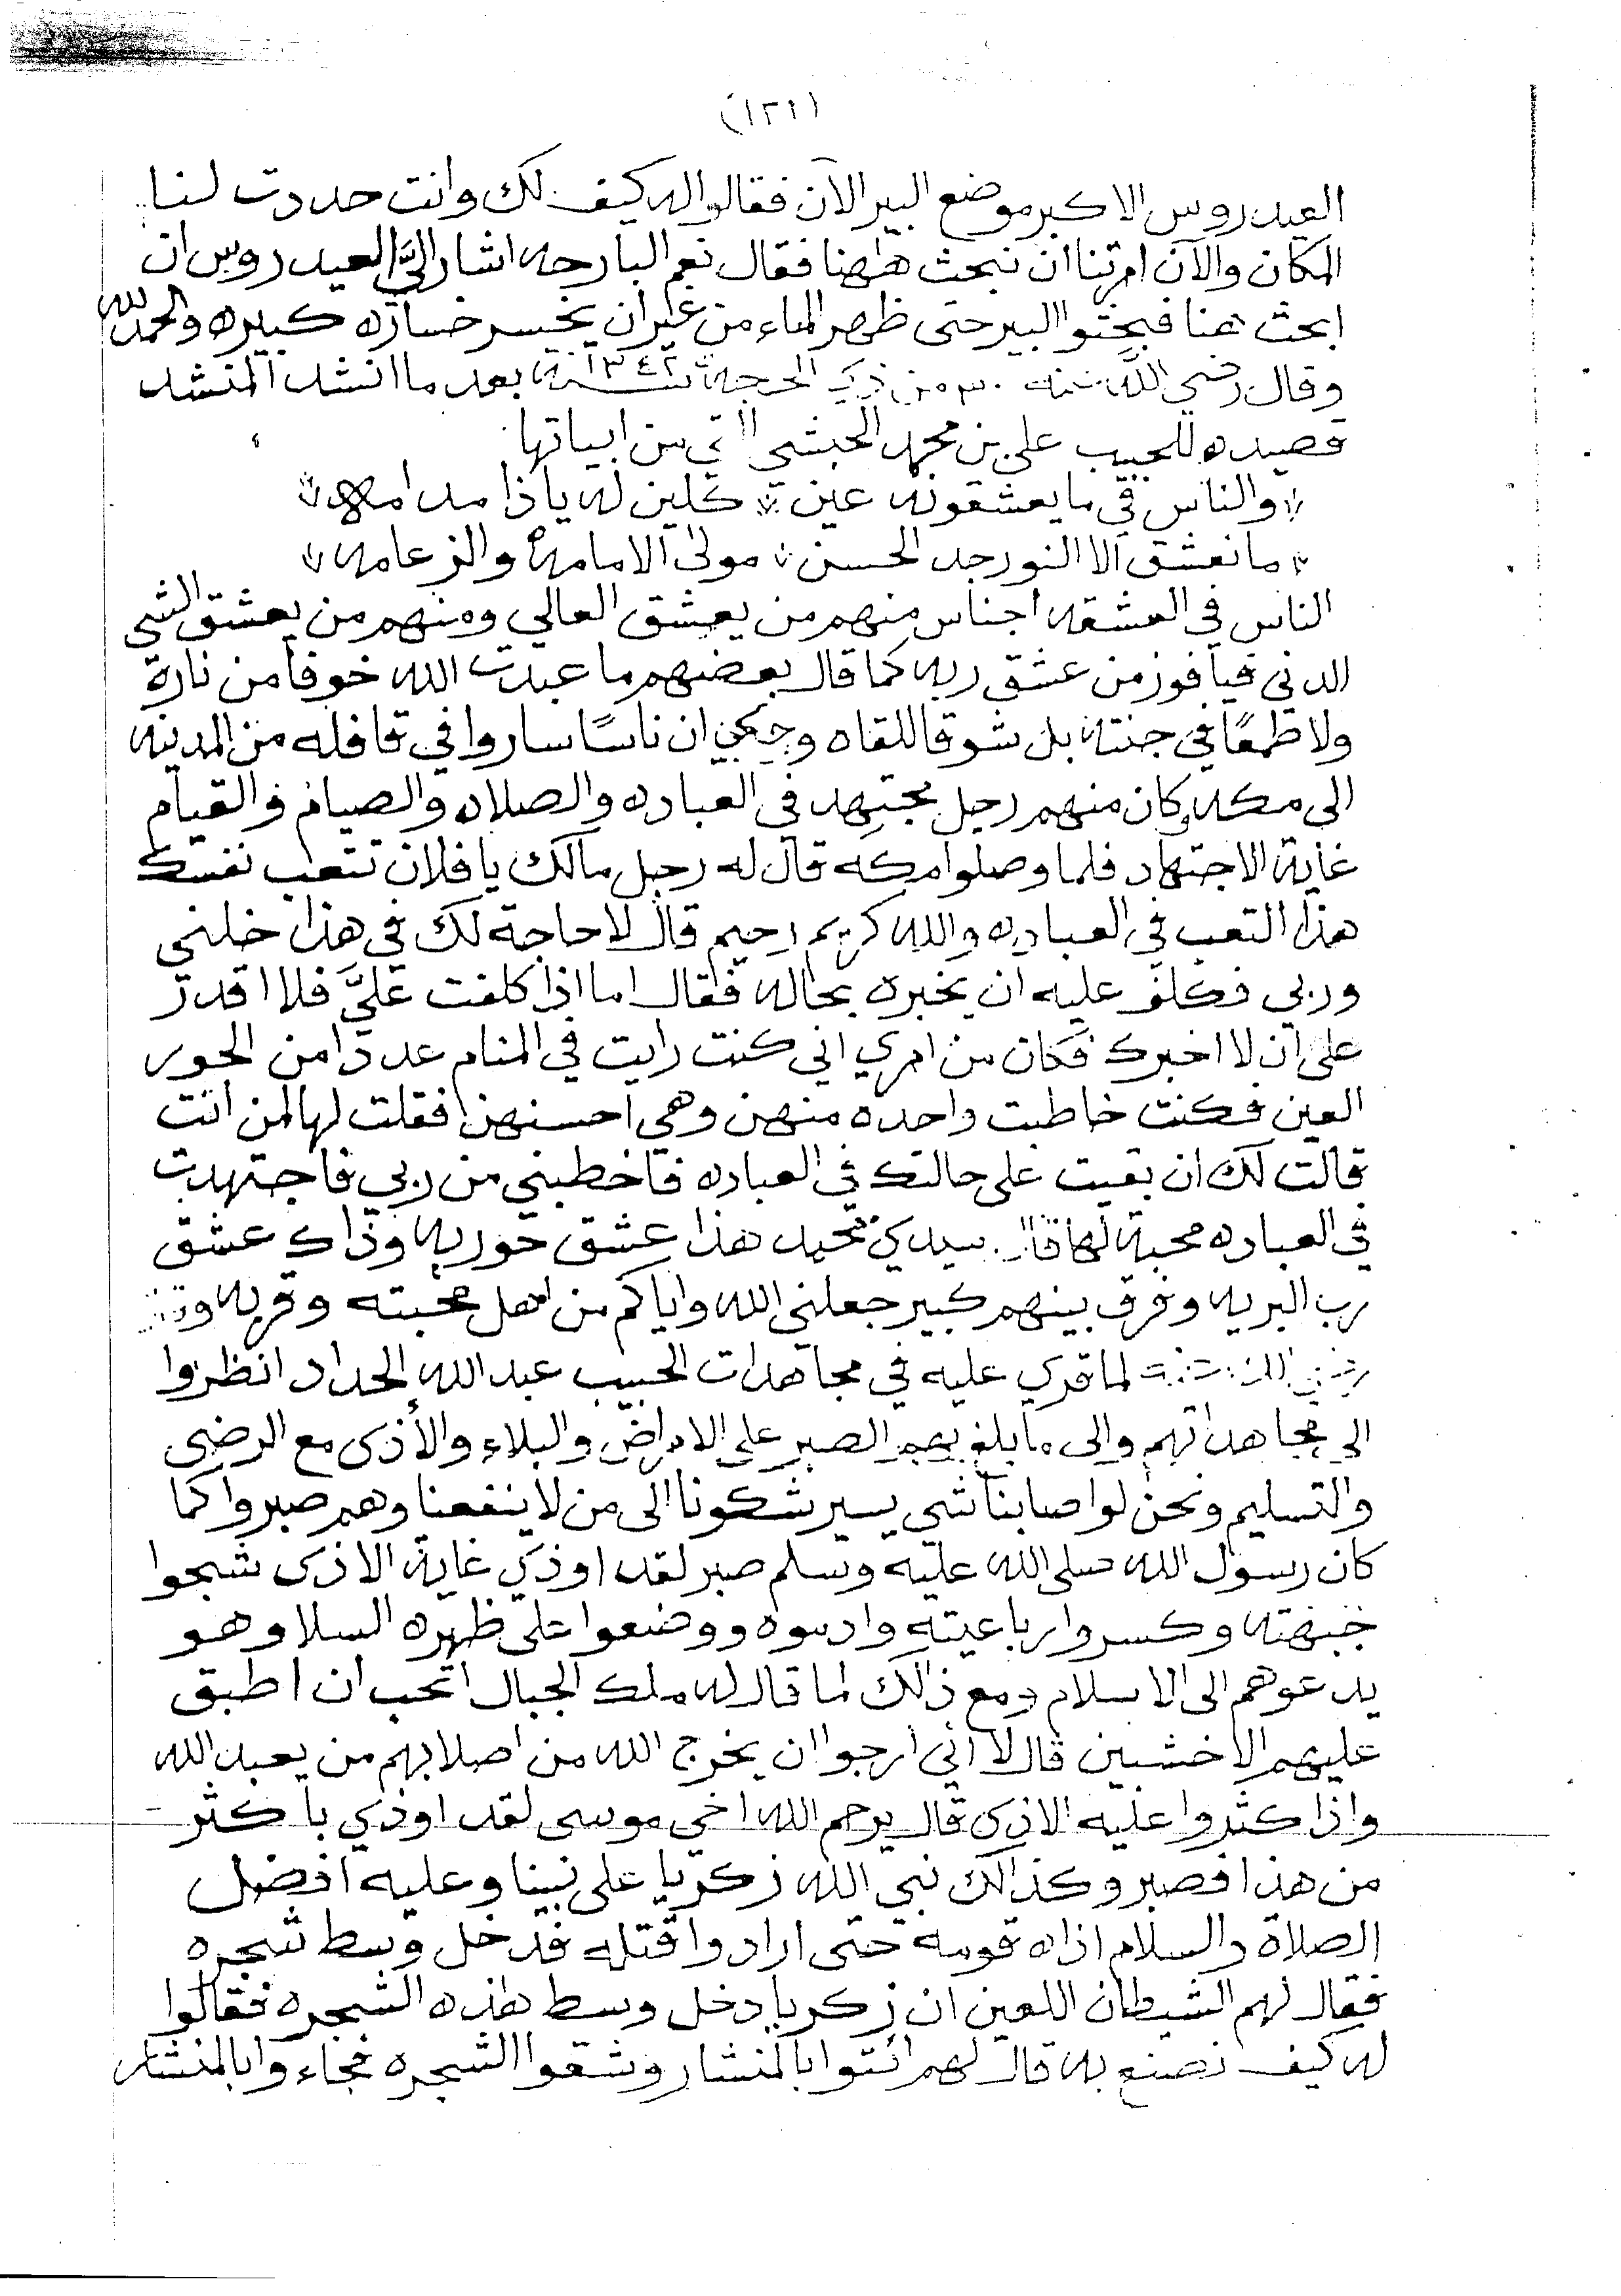 (١٢١)
العيدروس الاكبر موضع البير الآن فقالوا له كيف ذلك وانت حددت لنا
المكان والآن امرتنا ان نبحث هاهنا فقال نعم البارحه اشار اليَّ العيدروس ان
ابحث هنا فبحثوا البير حتى ظهر الماء من غير ان يخسر خساره كبيره والحمد لله
وقال رضي الله عنه ٣٠ من ذي الحجة سنة ١٣٤٢ بعد ما انشد المنشد
قصيده للحبيب علي بن محمد الحبشي التي من ابياتها
والناس في ما يعشقونه عين كلين له يا ذا مدامه
ما نعشق الا النور جد الحسن مولى الامامة والزعامه
الناس في العشقه اجناس منهم من يعشق العالي ومنهم من يعشق الشي
الدني فيا فوز من عشق ربه كما قال بعضهم ما عبدت الله خوفا من ناره
ولا طمعًا في جنته بل شوقا للقاه وحكي ان ناسًا ساروا في قافله من المدينه
الى مكه وكان منهم رجل مجتهد في العباده والصلاه والصيام والقيام
غاية الاجتهاد فلما وصلوا مكه قال له رجل مالك يا فلان تتعب نفسك
هذا التعب في العباده والله كريم رحيم قال لا حاجة لك في هذا خلني
وربي فكلف عليه ان يخبره بحاله فقال اما اذا كلفت عليَّ فلا اقدر
على ان لا اخبرك فكان من امري اني كنت رايت في المنام عددا من الحور
العين فكنت خاطبت واحده منهن وهي احسنهن فقلت لها لمن انت
قالت لك ان بقيت على حالتك في العباده فاخطبني من ربي فاجتهدت
في العباده محبة لها قال سيدي محمد هذا عشق حوريه وذاك عشق
رب البريه وفرق بينهم كبير جعلني الله واياكم من اهل محبته وقربه وقال
رضي الله عنه لما قري عليه في مجاهدات الحبيب عبد الله الحداد انظروا
الى مجاهداتهم والى ما بلغ بهم الصبر على الامراض والبلاء والأذى مع الرضى
والتسليم ونحن لو اصابنا شي يسير شكونا الى من لا ينفعنا وهم صبروا كما
كان رسول الله صلى الله عليه وسلم صبر لقد اوذي غاية الاذى شجوا
جبهته وكسروا رباعيته وادموه ووضعوا على ظهره السلا وهو
يدعوهم الى الاسلام ومع ذالك لما قال له ملك الجبال اتحب ان اطبق
عليهم الاخشبين قال لا اني ارجوا ان يخرج الله من اصلابهم من يعبد الله
واذا كثروا عليه الاذى قال يرحم الله اخي موسى لقد اوذي باكثر
من هذا فصبر وكذالك نبي الله زكريا على نبينا وعليه افضل
الصلاة والسلام اذاه قومه حتى ارادوا قتله فدخل وسط شجره
فقال لهم الشيطان اللعين ان زكريا دخل وسط هذه الشجره فقالوا
له كيف نصنع به قال لهم ائتوا بالمنشار وشقوا الشجره فجاءوا بالمنشار